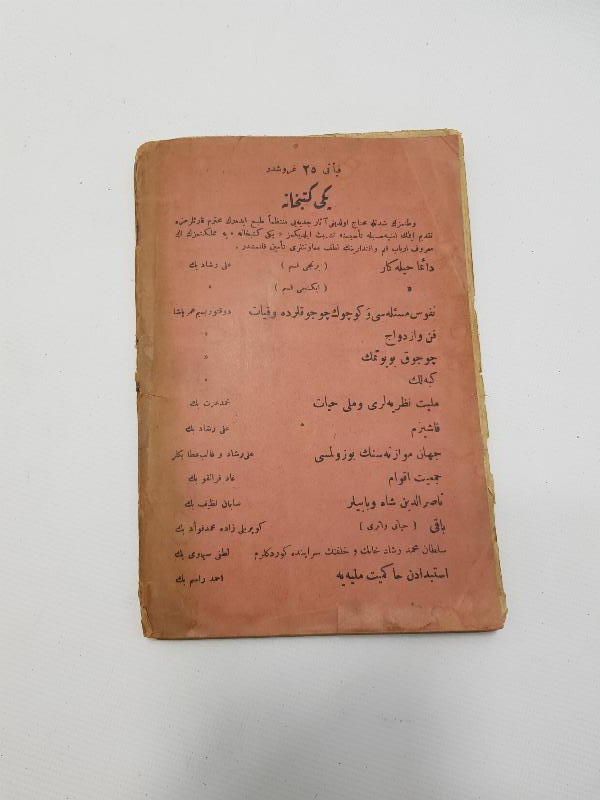 فیأتی ٢٥ غروشدر
یکی کتبخانه
وطنمزك شدتله محتاج اولدیغی آثار جدیه‌یی منتظماً طبع ایده‌رك محترم قارئلرمزه
تقدیم ایتمك امنیه‌سیله تأسیسنه تشبث ایلدیکمز « یکی کتبخانه » یه مملکتمزك اك
معروف ارباب قلم واقتدارینك لطف معاونتلری تأمین قلنمشدر .
دائما حیله‌کار ( برنجی قسم ) علی رشاد بك
» ( ایکنجی قسم ) »
نفوس مسئله‌سی و کوچوك چوجوقلرده وفیات دوقتور بسیم عمر پاشا
فن وازدواج »
چوجوق بویوتمك »
کبه‌لك »
ملیت نظریه‌لری وملی حیات محمد عزت بك
فاشیزم علی رشاد بك
جهان موازنه‌سنك بوزولمسی علی رشاد و غالب عطا بکلر
جمعیت اقوام
ناصرالدین شاه وبابیلر سلیمان نظیف بك
باقی ( حیاتی واثری ) کوپریلی زاده محمد فوآد بك
سلطان محمد رشاد خانك و خلفنك سراینده کوردکلرم لطفی سیماوی بك
استبداددن حاکمیت ملیه‌یه احمد راسم بك